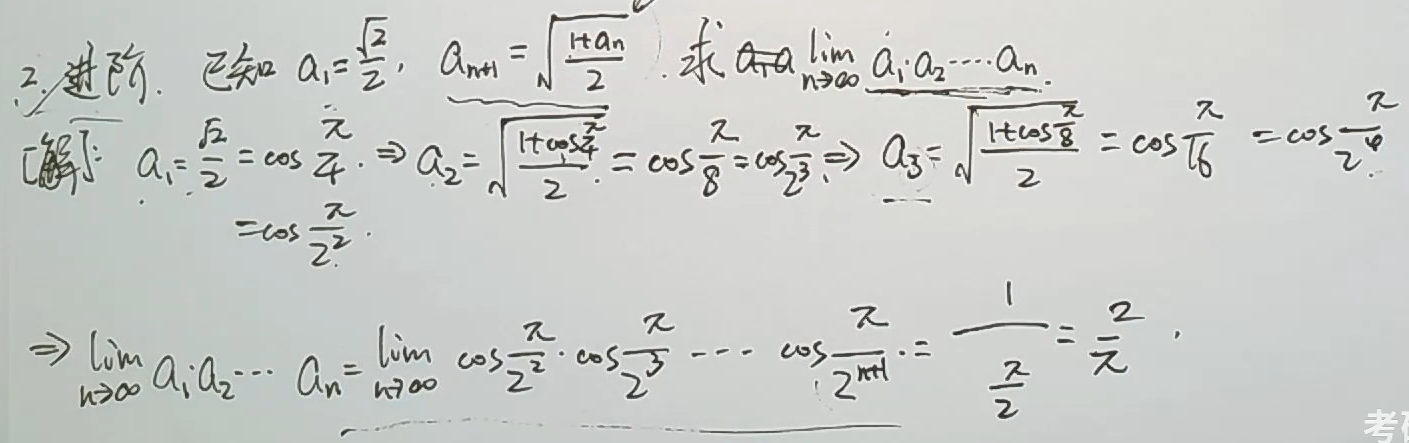 2. 进阶. 已知 a₁=√2/2, aₙ₊₁=√((1+aₙ)/2). 求 lim_{n→∞} a₁·a₂····aₙ.
[解]: a₁=√2/2=cos π/4. ⇒ a₂=√((1+cos π/4)/2)=cos π/8=cos π/2³ ⇒ a₃=√((1+cos π/8)/2)=cos π/16=cos π/2⁴.
=cos π/2².
⇒ lim_{n→∞} a₁·a₂··· aₙ=lim_{n→∞} cos π/2²·cos π/2³ ···· cos π/2ⁿ⁺¹.=1/(π/2)=2/π.
考